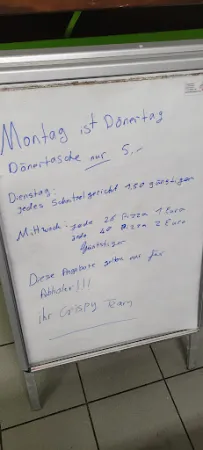 Montag ist Dönertag
Dönertasche nur 5,-
Dienstag:
jedes Schnitzelgericht 1,50 günstiger
Mittwoch: jede 26 Pizza 1 Euro
jede 40 Pizza 2 Euro
günstiger
Diese Angebote gelten nur für
Abholer!!!
ihr Crispy Team